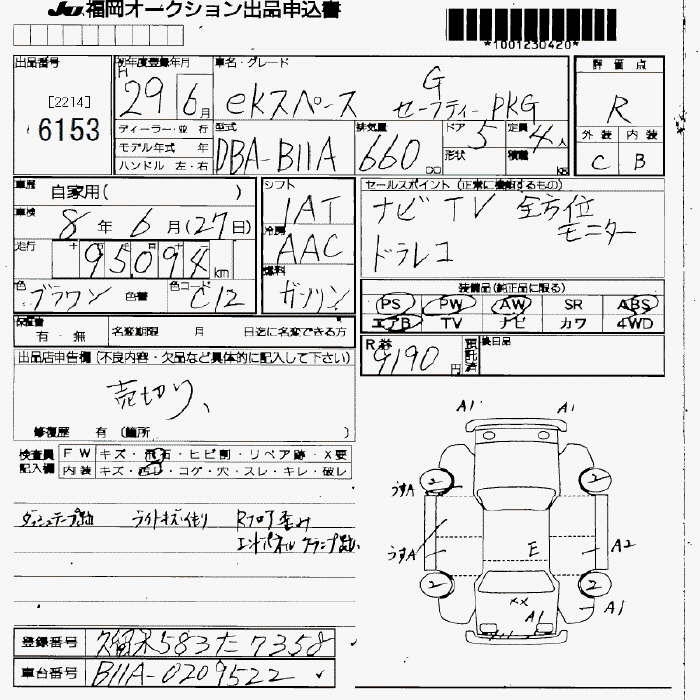 JU福岡オークション出品申込書
*1001230420*
出品番号
[2214]
6153
初年度登録年月
H
29 6月
ディーラー・並行
モデル年式 年
ハンドル 左・右
車名・グレード
ekスペース G セーフティーPKG
型式
DBA-B11A
排気量
660 cc
ドア
5
形状
定員
4人
積載
kg
評価点
R
外装 内装
C B
車歴 自家用( )
車検 8年 6月(27日)
走行 95094 km
色 ブラウン 色替 色コード C12
シフト
IAT
冷房
AAC
燃料
ガソリン
セールスポイント (正常に機能するもの)
ナビ TV 全方位モニター
ドラレコ
装備品(純正品に限る)
PS PW AW SR ABS
エアB TV ナビ カワ 4WD
保証書
有・無
名変期限 月 日迄に名変できる方
R券
9190円
預託済
後日品
出品店申告欄(不良内容・欠品など具体的に記入して下さい)
売切り、
修復歴 有(箇所 )
検査員記入欄
FW キズ・飛石・ヒビ割・リペア跡・X要
内装 キズ・汚レ・コゲ・穴・スレ・キレ・破レ
ライトキズ・くもり Rフロア歪み
A1 A1
2 2
うすA
うすA
E
A2
2 2
xx
A1
A1
登録番号 久留米583た7358
車台番号 B11A-0209522